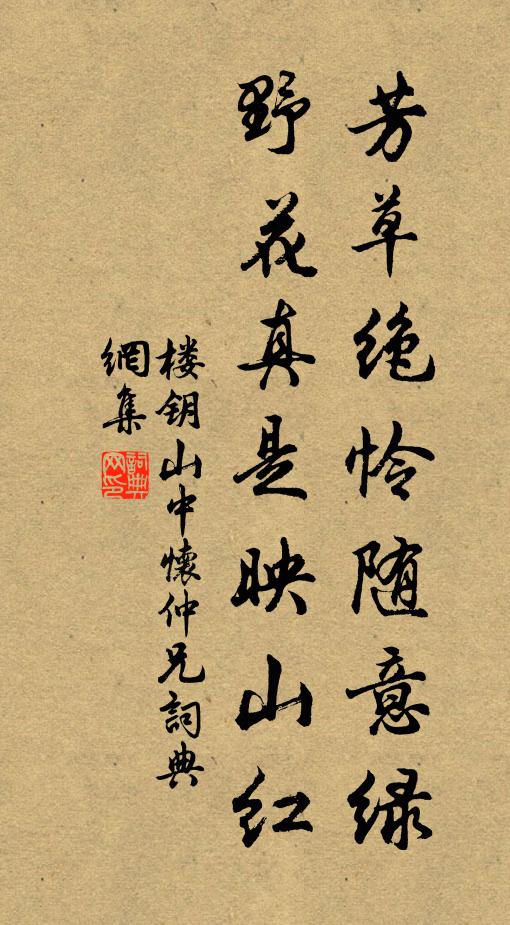 芳草绝怜随意绿
野花真是映山红
楼钥山中懷仲兄詞典
網集
詞典网印